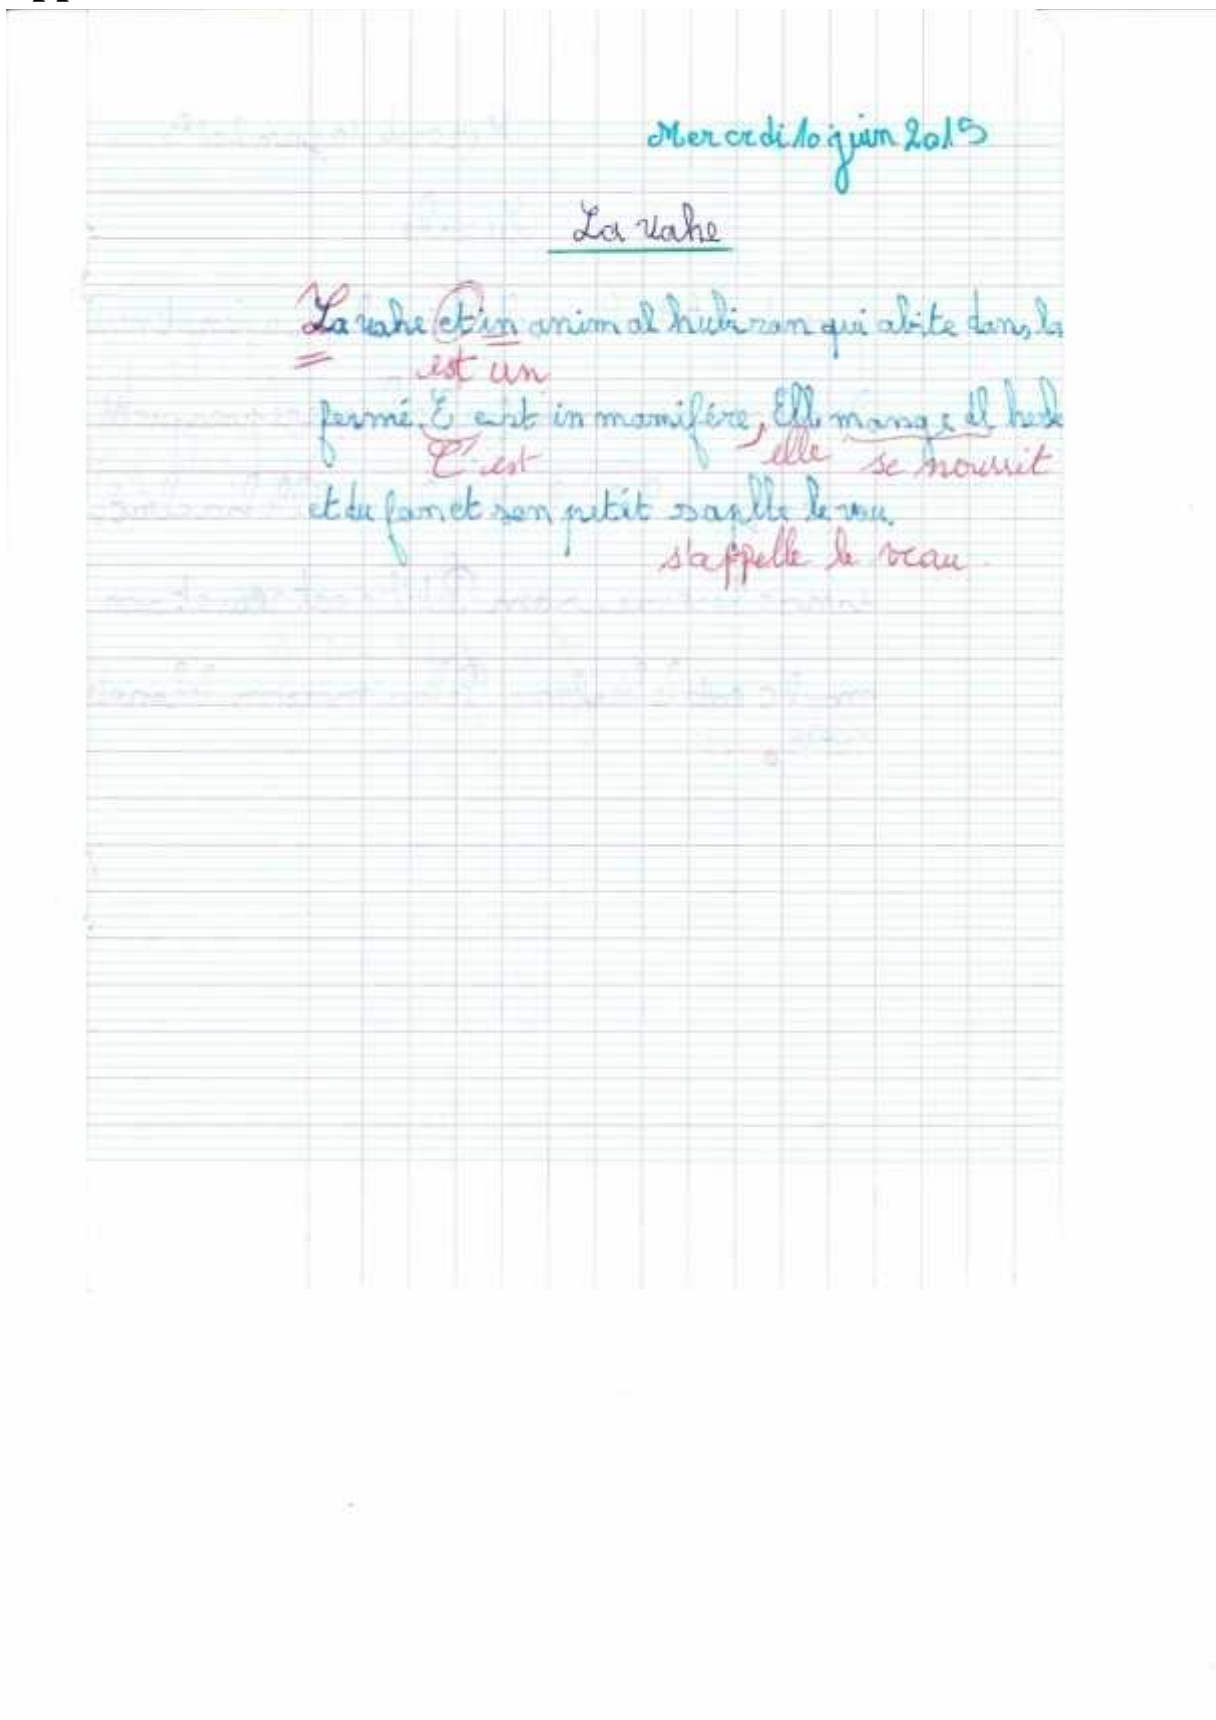 Mercrdi 10 juin 2015
La vahe
La vahe et in animal hubiran qui abite dans la
est un
fermé. C est in mamifére, Elle mange él herbe
C'est elle se nourrit
et du fon et son petit saplle le vou.
s'appelle le veau.